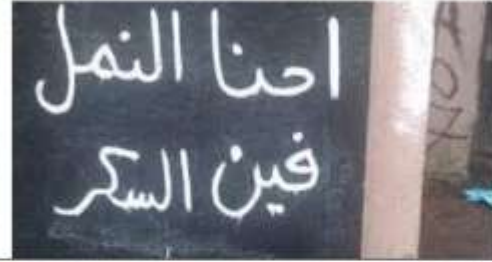 احنا النمل
فين السكر